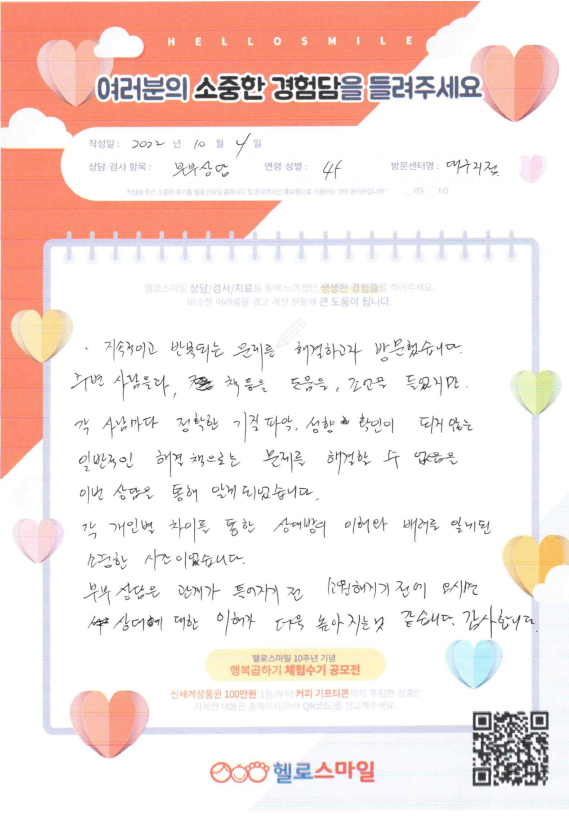 HELLOSMILE
여러분의 소중한 경험담을 들려주세요
작성일 : 2022 년 10 월 4 일
상담 검사 항목 : 부부상담 연령 성별 : 방문센터명 : 대구지점
작성해 주신 소중한 후기를 헬로스마일 홈페이지 및 온오프라인 홍보용으로 사용하는 것에 동의하십니까? YES NO
헬로스마일 상담/검사/치료를 통해 느끼셨던 생생한 경험들을 적어주세요.
비슷한 어려움을 겪고 계신 분들께 큰 도움이 됩니다.
· 지속적이고 반복되는 문제를 해결하고자 방문했습니다.
주변 사람들과, 책 등을 도움을, 조언을 들었지만.
각 사람마다 정확한 기질 파악, 성향 확인이 되지 않는
일반적인 해결책으로는 문제를 해결할 수 없음을
이번 상담을 통해 알게 되었습니다.
각 개인별 차이를 통한 상대방의 이해와 배려를 알게된
소중한 시간이었습니다.
부부상담은 관계가 틀어지기 전 소원해지기 전에 오시면
상대에 대한 이해가 더욱 높아지는것 같습니다. 감사합니다.
헬로스마일 10주년 기념
행복곱하기 체험수기 공모전
신세계상품권 100만원(1등)부터 커피 기프티콘까지 푸짐한 상품!!
자세한 내용은 홈페이지(아래 QR코드)를 참고해주세요.
헬로스마일